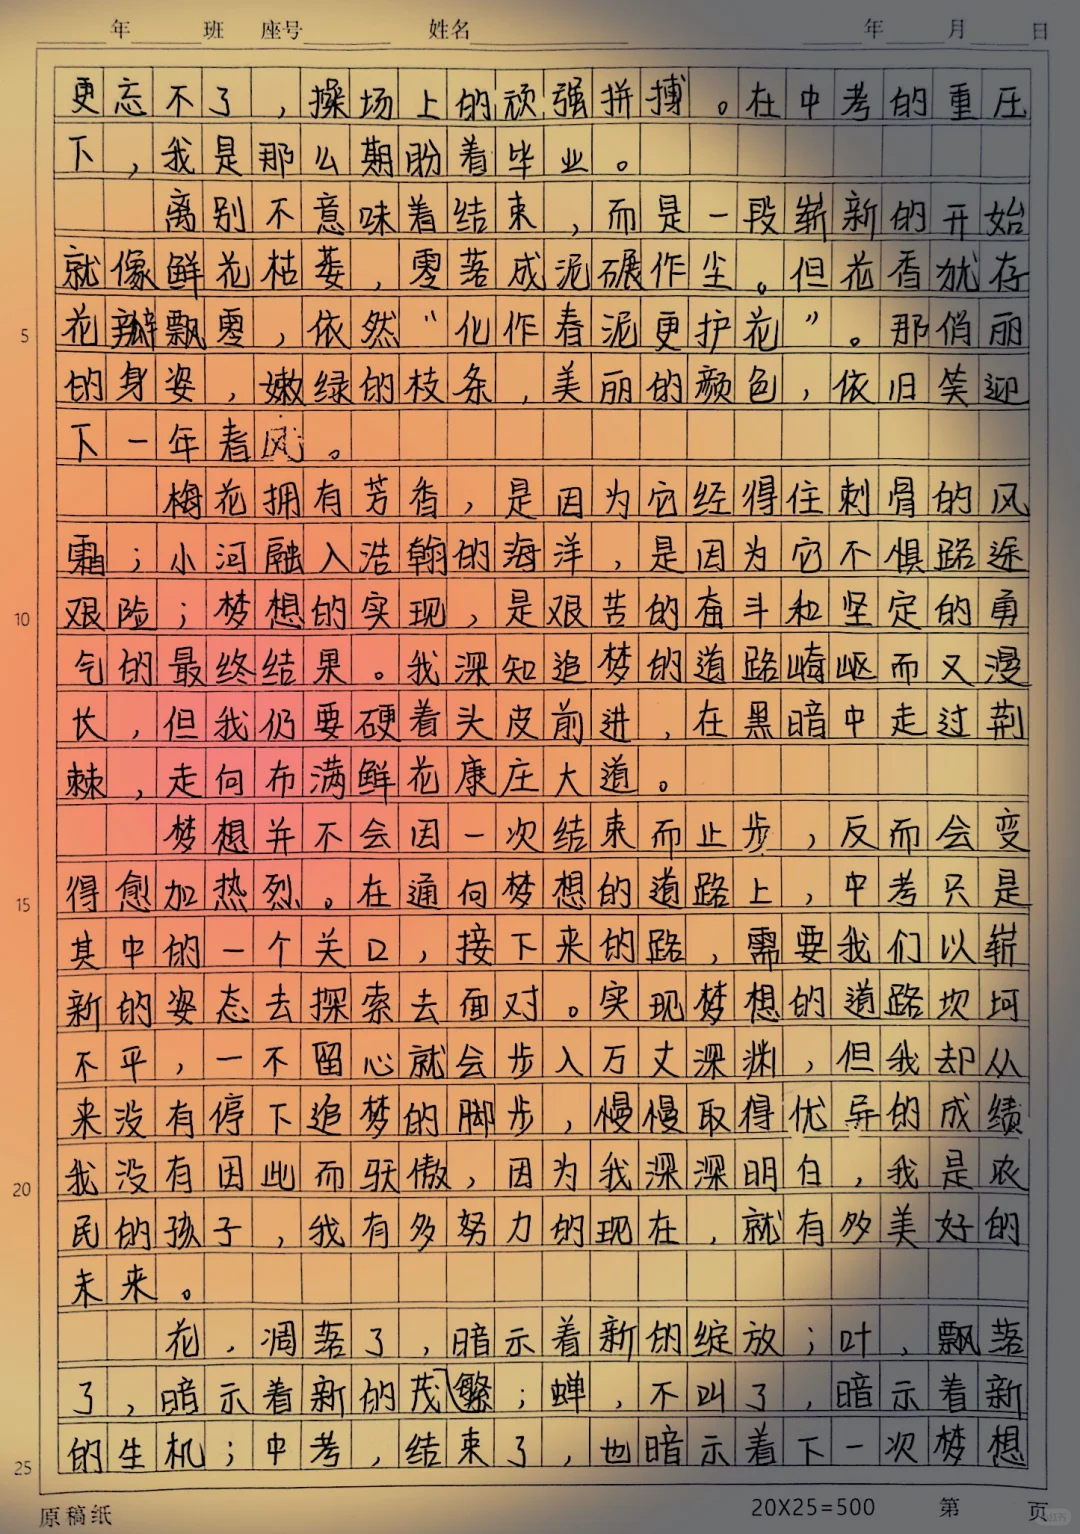 年 班 座号 姓名 年 月 日
更忘不了，操场上的顽强拼搏。在中考的重压
下，我是那么期盼着毕业。
离别不意味着结束，而是一段崭新的开始
就像鲜花枯萎，零落成泥碾作尘。但花香犹存
5 花瓣飘零，依然“化作春泥更护花”。那俏丽
的身姿，嫩绿的枝条，美丽的颜色，依旧笑迎
下一年春风。
梅花拥有芳香，是因为它经得住刺骨的风
霜；小河融入浩翰的海洋，是因为它不惧路途
10 艰险；梦想的实现，是艰苦的奋斗和坚定的勇
气的最终结果。我深知追梦的道路崎岖而又漫
长，但我仍要硬着头皮前进，在黑暗中走过荆
棘，走向布满鲜花康庄大道。
梦想并不会因一次结束而止步，反而会变
15 得愈加热烈。在通向梦想的道路上，中考只是
其中的一个关口，接下来的路，需要我们以崭
新的姿态去探索去面对。实现梦想的道路坎坷
不平，一不留心就会步入万丈深渊，但我却从
来没有停下追梦的脚步，慢慢取得优异的成绩
20 我没有因此而骄傲，因为我深深明白，我是农
民的孩子，我有多努力的现在，就有多美好的
未来。
花，凋落了，暗示着新的绽放；叶，飘落
了，暗示着新的茂繁；蝉，不叫了，暗示着新
25 的生机；中考，结束了，也暗示着下一次梦想
原稿纸 20X25=500 第 页